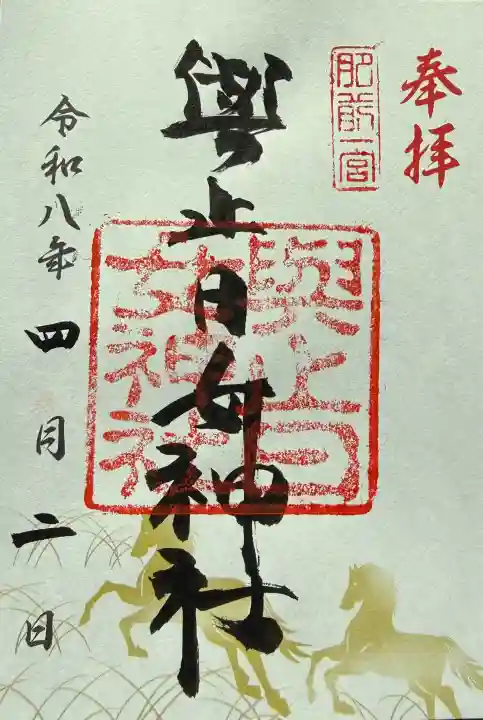 奉拝
肥前一宮
與止日女神社
與止日
女神社
令和八年四月二日